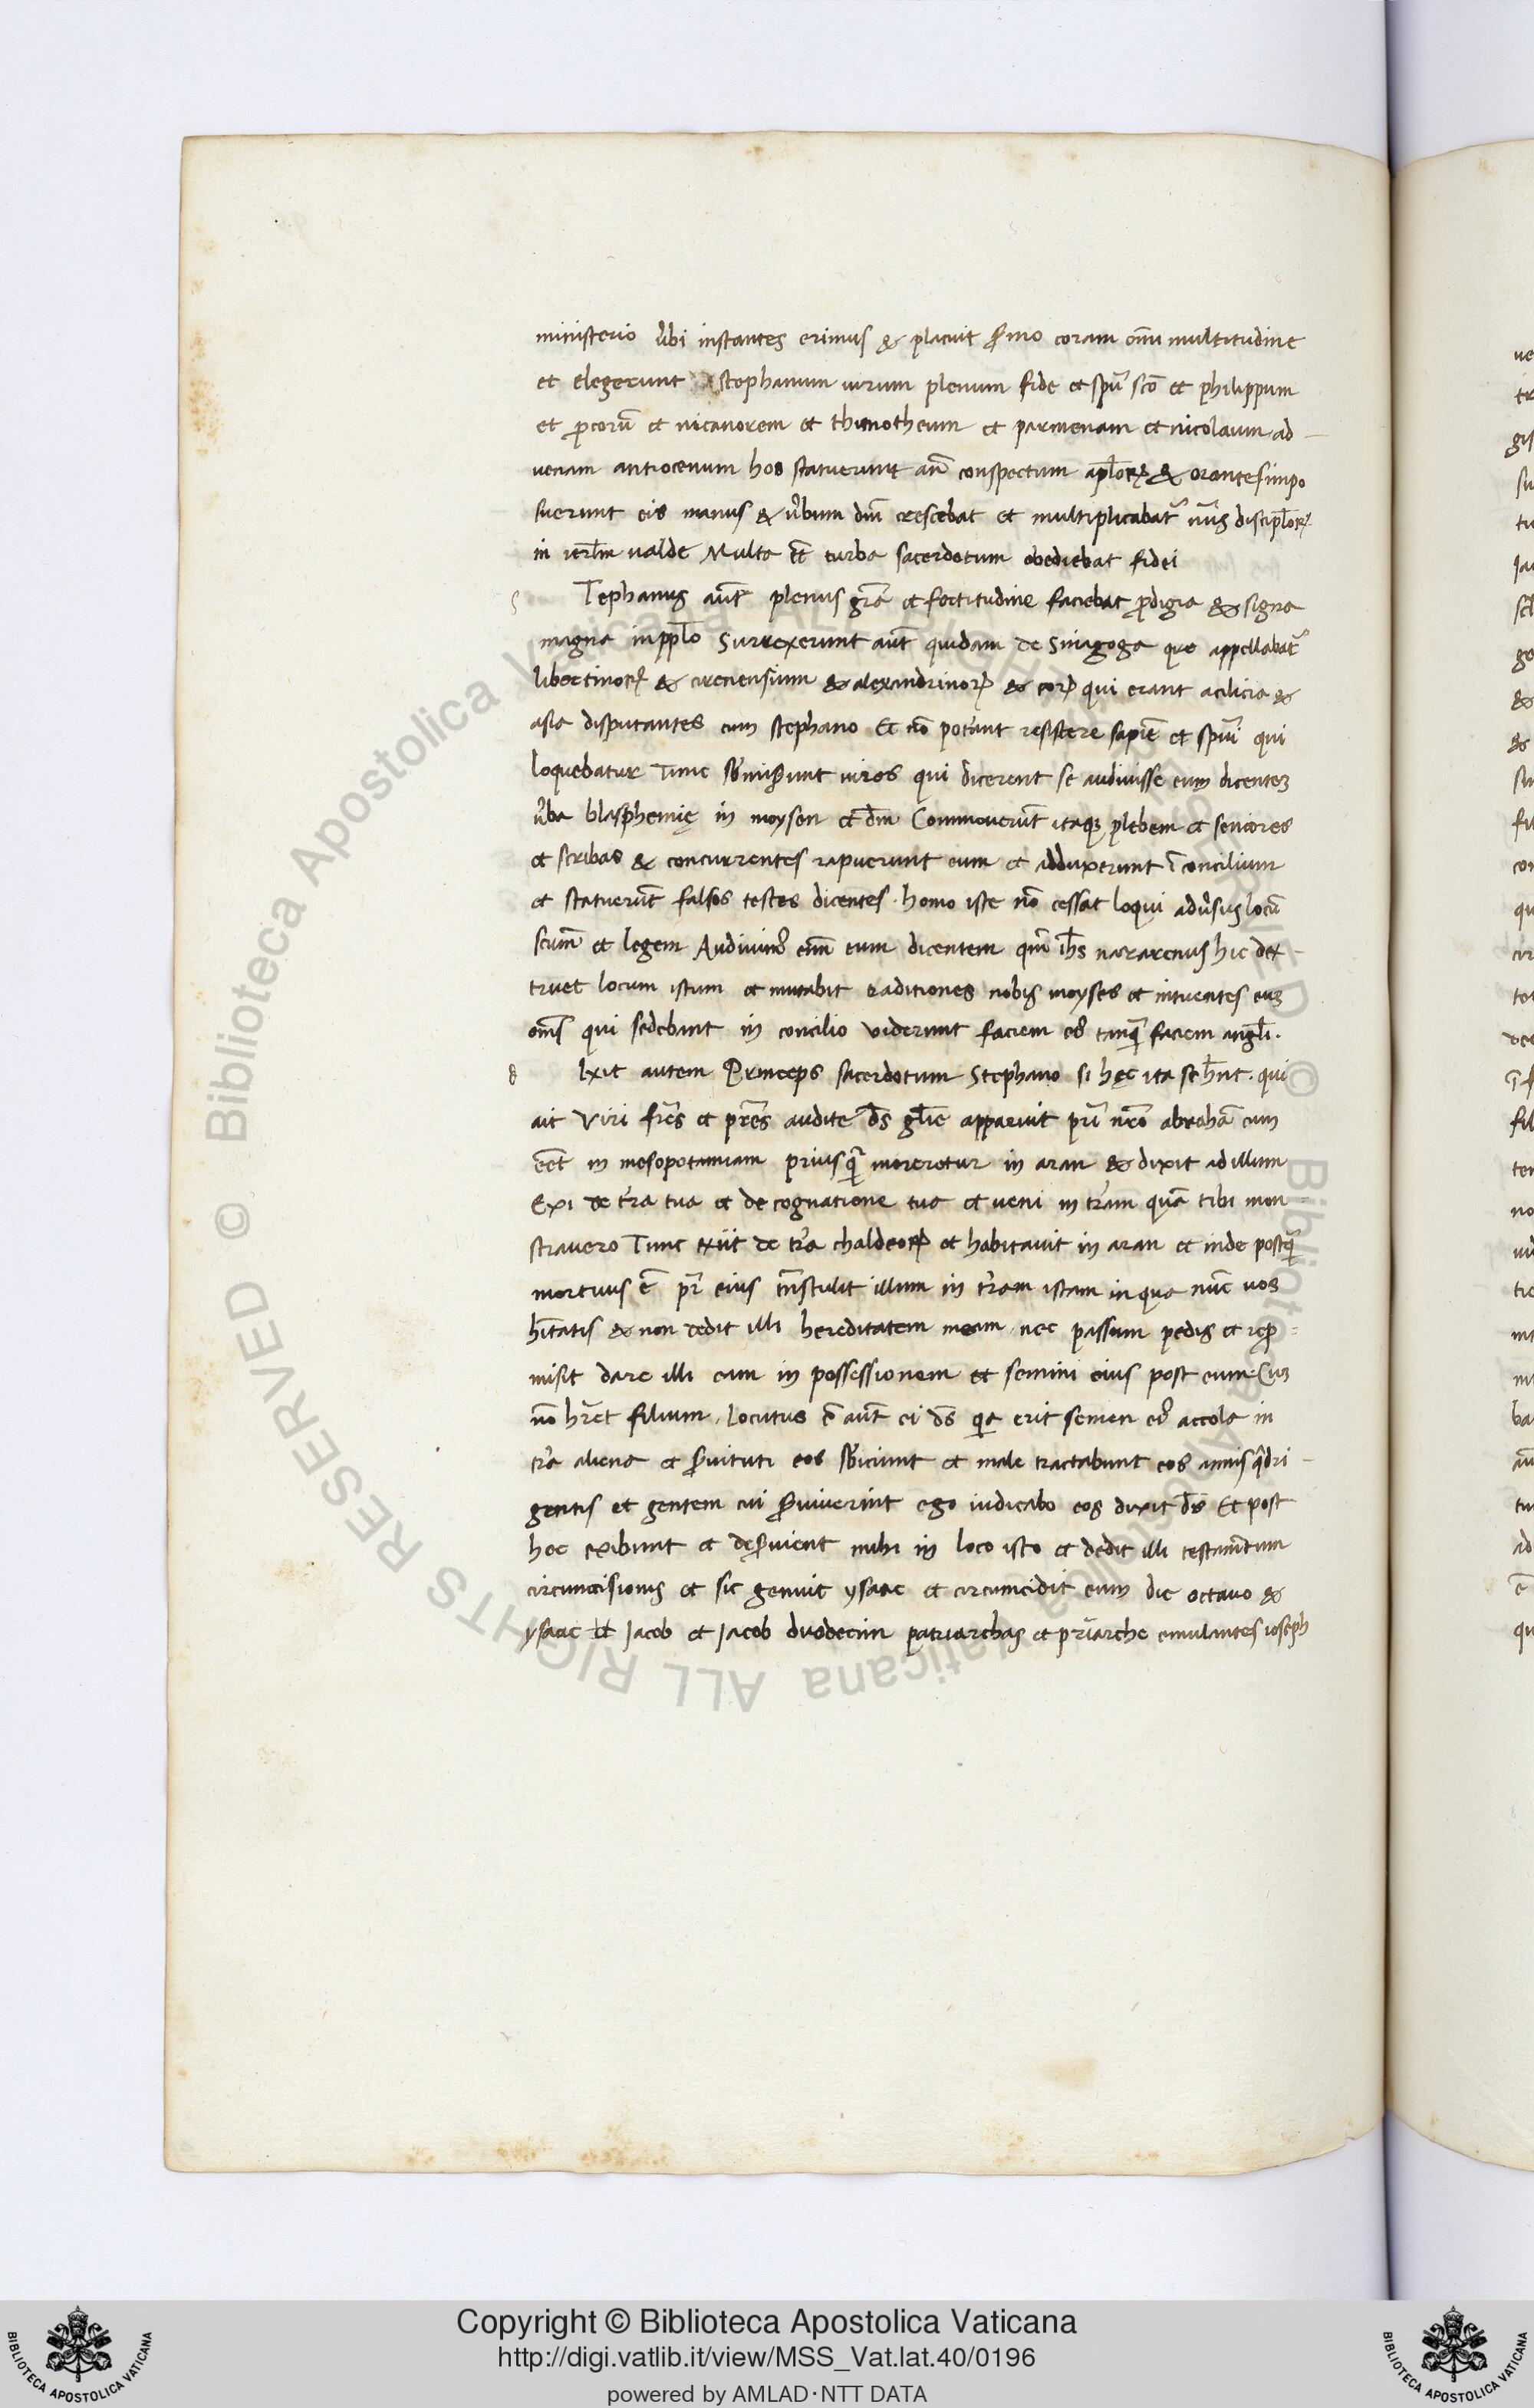 ministerio ùbi instantes erimus & placuit ẜmo coram om̄i multitudine
et elegerunt stephanum uirum plenum fide et spū sc̄o et philippum
et ꝓcorū et nicanorem et thimotheum et parmenam et nicolaum ad-
uenam antiocenum hos statuerunt an̄ conspectum apl̄oꝝ & orantes impo
suerunt eis manus & ùbum dn̄i crescebat et multiplicabat᷑ nūs discipl̄oꝝ
in ierl̄m ualde Multa et̄ turba sacerdotum obediebat fidei
s Tephanus aut̄ plenus gr̄a et fortitudine faciebat ꝓdigia & signa
magna in ppl̄o Surrexerunt aut̄ quidam de Sinagoga que appellabat᷑
libertinoꝝ & cirenensium & alexandrinoꝝ & eoꝝ qui erant a cilicia &
asia disputantes cum stephano Et nō pot̄ant resistere sapiē et spūi qui
loquebatur Tunc sb̄miẜunt uiros qui dicerent se audiuisse eum dicenteꝫ
ùba blasphemię in moysen et dm̄ Commouerūt itaqꝫ plebem et seniores
et scribas & concurrentes rapuerunt eum et adduxerunt ī concilium
et statuerūt falsos testes dicentes · homo iste nō cessat loqui adùsus locū
scūm et legem Audiuimꝰ eni᷑m eum dicentem qm̄ ih̄s nazarenus hic det-
truet locum istum et mutabit traditiones nobis moyses et intuentes euꝫ
oms̄ qui sedebant in concilio uiderunt faciem eiꝰ tanq̄ faciem angl̄i.
d Ixit autem Princeps sacerdotum Stephano si hęc ita se hn̄t · qui
ait Viri fr̄es et pr̄es audite ds̄ gl̄ie apparuit pr̄i nr̄o abrahā cum
eēt in mesopotamiam priusq̄ moreretur in aran & dixit ad illum
Exi de tr̄a tua et de cognatione tua et ueni in tr̄am quā tibi mon-
strauero Tunc exiit de tr̄a chaldeoꝝ et habitauit in aran et inde postq̄
mortuus ē pr̄ eius trn̄stulit illum in tr̄am istam in qua nūc uos
hītatis & non dedit illi hereditatem in eam nec passum pedis et repꝓ=
misit dare illi eam in possessionem et semini eius post eum Cuꝫ
nō hr̄et filium, locutus ē aut̄ ei ds̄ q̄a erit semen eiꝰ accola in
tr̄a aliena et ẜuituti eos sb̄icient et male tractabunt eos annis q̄dri-
gentis et gentem cui ẜuiuerint ego iudicabo eos dixit ds̄ Et post
hec exibunt et deẜuient mihi in loco isto et dedit illi testam̄tum
circuncisionis et sic genuit ysaac et circumcidit eum die octauo &
ysaac et Jacob et Jacob duodecim patriarchas et pr̄iarche emulantes ioseph
Copyright © Biblioteca Apostolica Vaticana
http://digi.vatlib.it/view/MSS_Vat.lat.40/0196
powered by AMLAD·NTT DATA